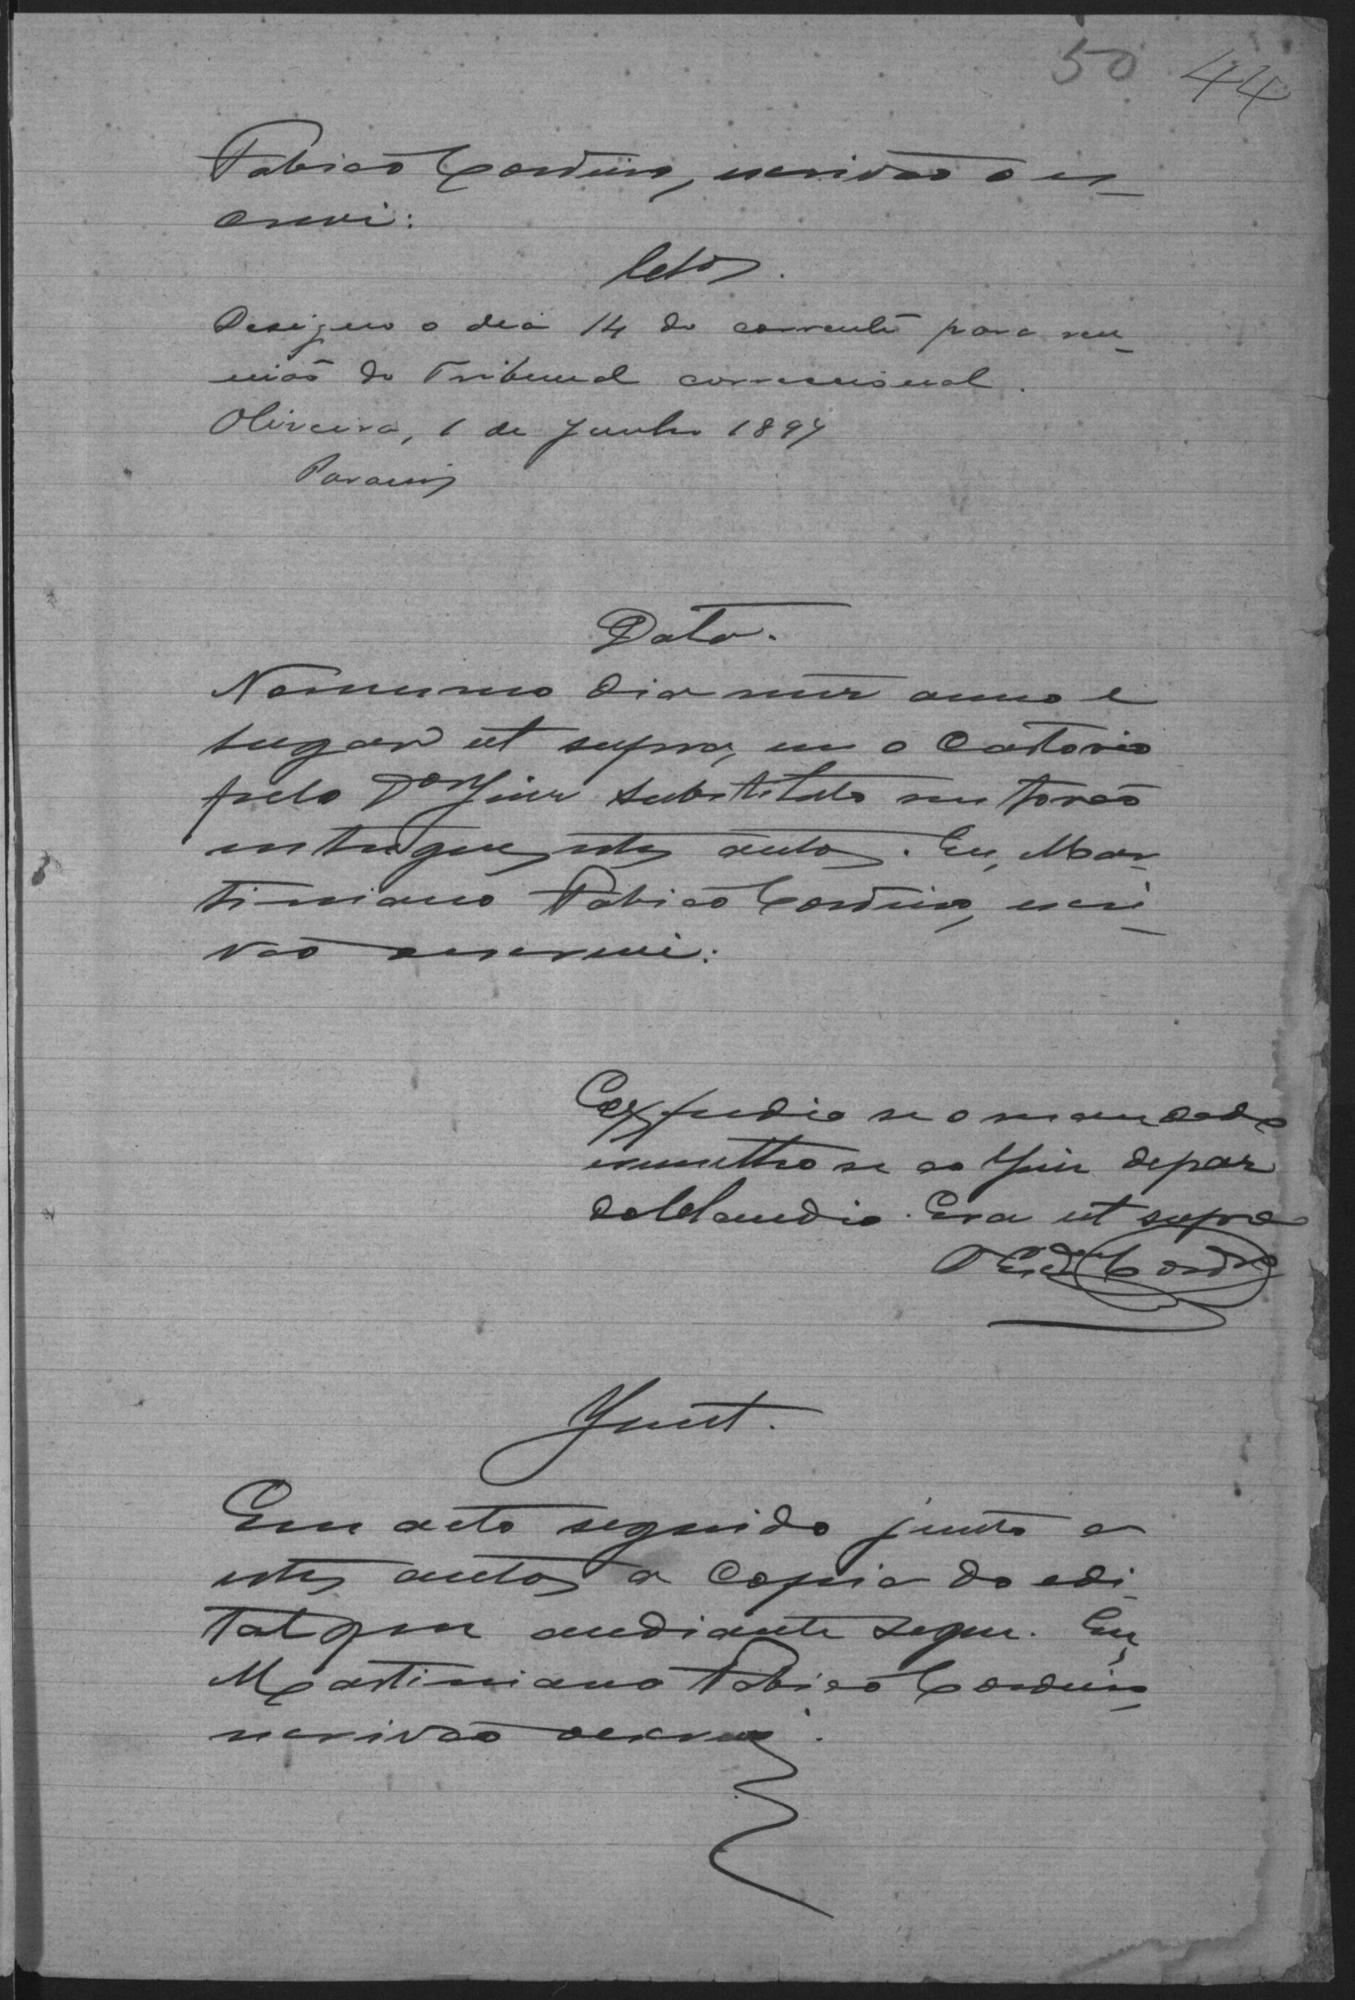 50 44
Fabião Cordeiro, escrivão o es-
crevi:
Clos.
Designo o dia 14 do corrente para reu-
nião do Tribunal correcional.
Oliveira, 1 de Junho 1897
Data.
No mesmo dia mez anno e
lugar ut supra, em o Cartorio
pelo Dor Juiz substituto me forão
entregues estes autos. Eu, Mar-
timiano Fabião Cordeiro, escri-
vão o escrevi:
Expedio se o mandado
remetteo se ao Juiz de paz
do Claudio. Era ut supra
O Escr Cordro
Junt.
Em acto seguido junto a
estes autos a copia do edi-
tal que andiante segue. Eu,
Martimiano Fabião Cordeiro,
escrivão o escrevi.